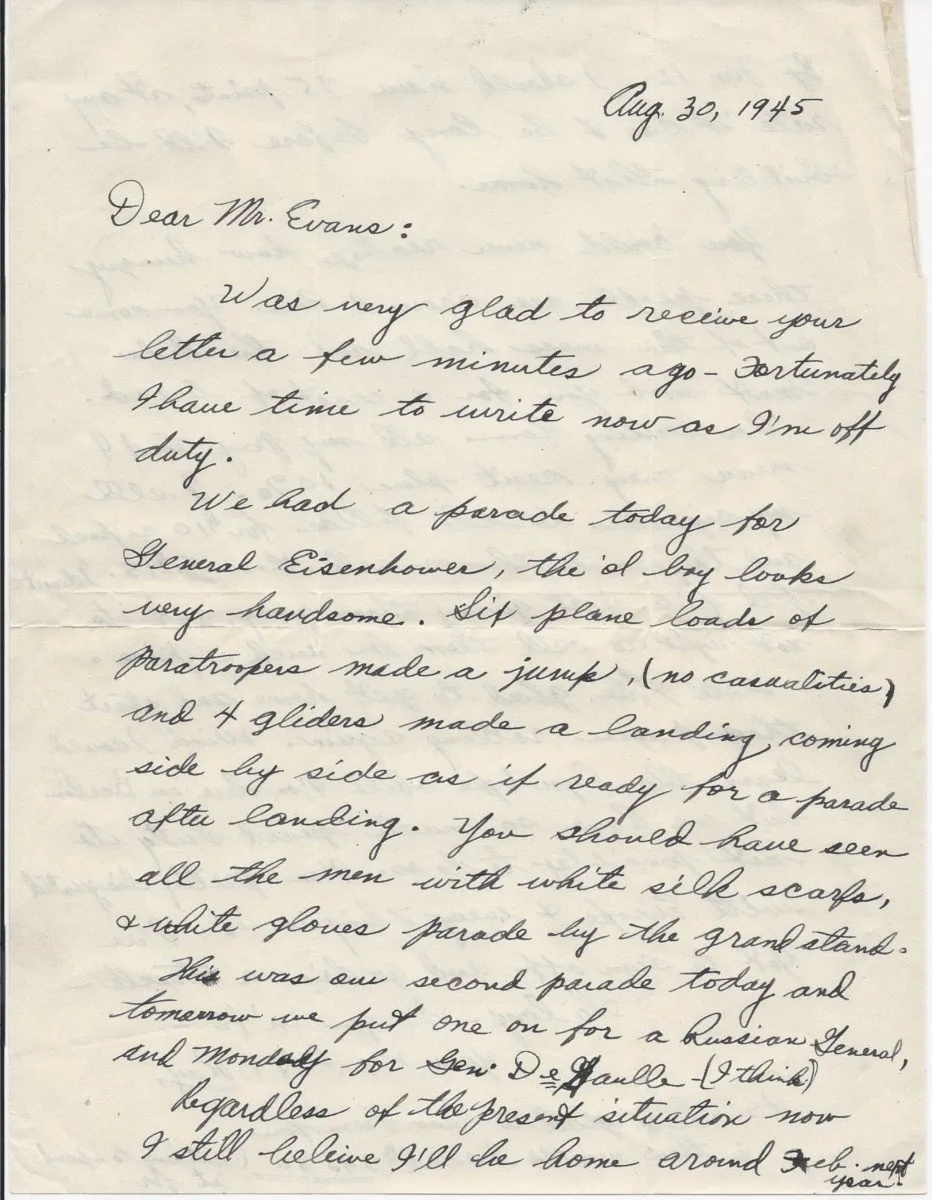 Aug. 30, 1945
Dear Mr. Evans:
Was very glad to receive your
letter a few minutes ago - Fortunately
I have time to write now as I'm off
duty.
We had a parade today for
General Eisenhower, the ol boy looks
very handsome. Six plane loads of
Paratroopers made a jump, (no casualities)
and 4 gliders made a landing, coming
side by side as if ready for a parade
after landing. You should have seen
all the men with white silk scarfs,
& white gloves parade by the grand stand.
This was our second parade today and
tomorrow we put one on for a Russian General,
and Monday for Gen. De Gaulle - (I think)
Regardless of the present situation now
I still beleive I'll be home around Feb. next
year.